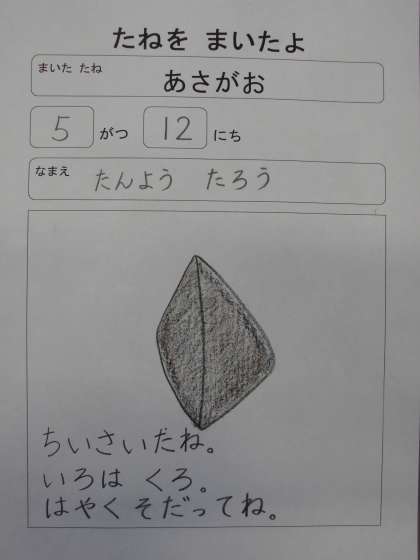 たねを まいたよ
まいた たね
あさがお
5 がつ 12 にち
なまえ たんよう たろう
ちいさいたね。
いろは くろ。
はやく そだってね。